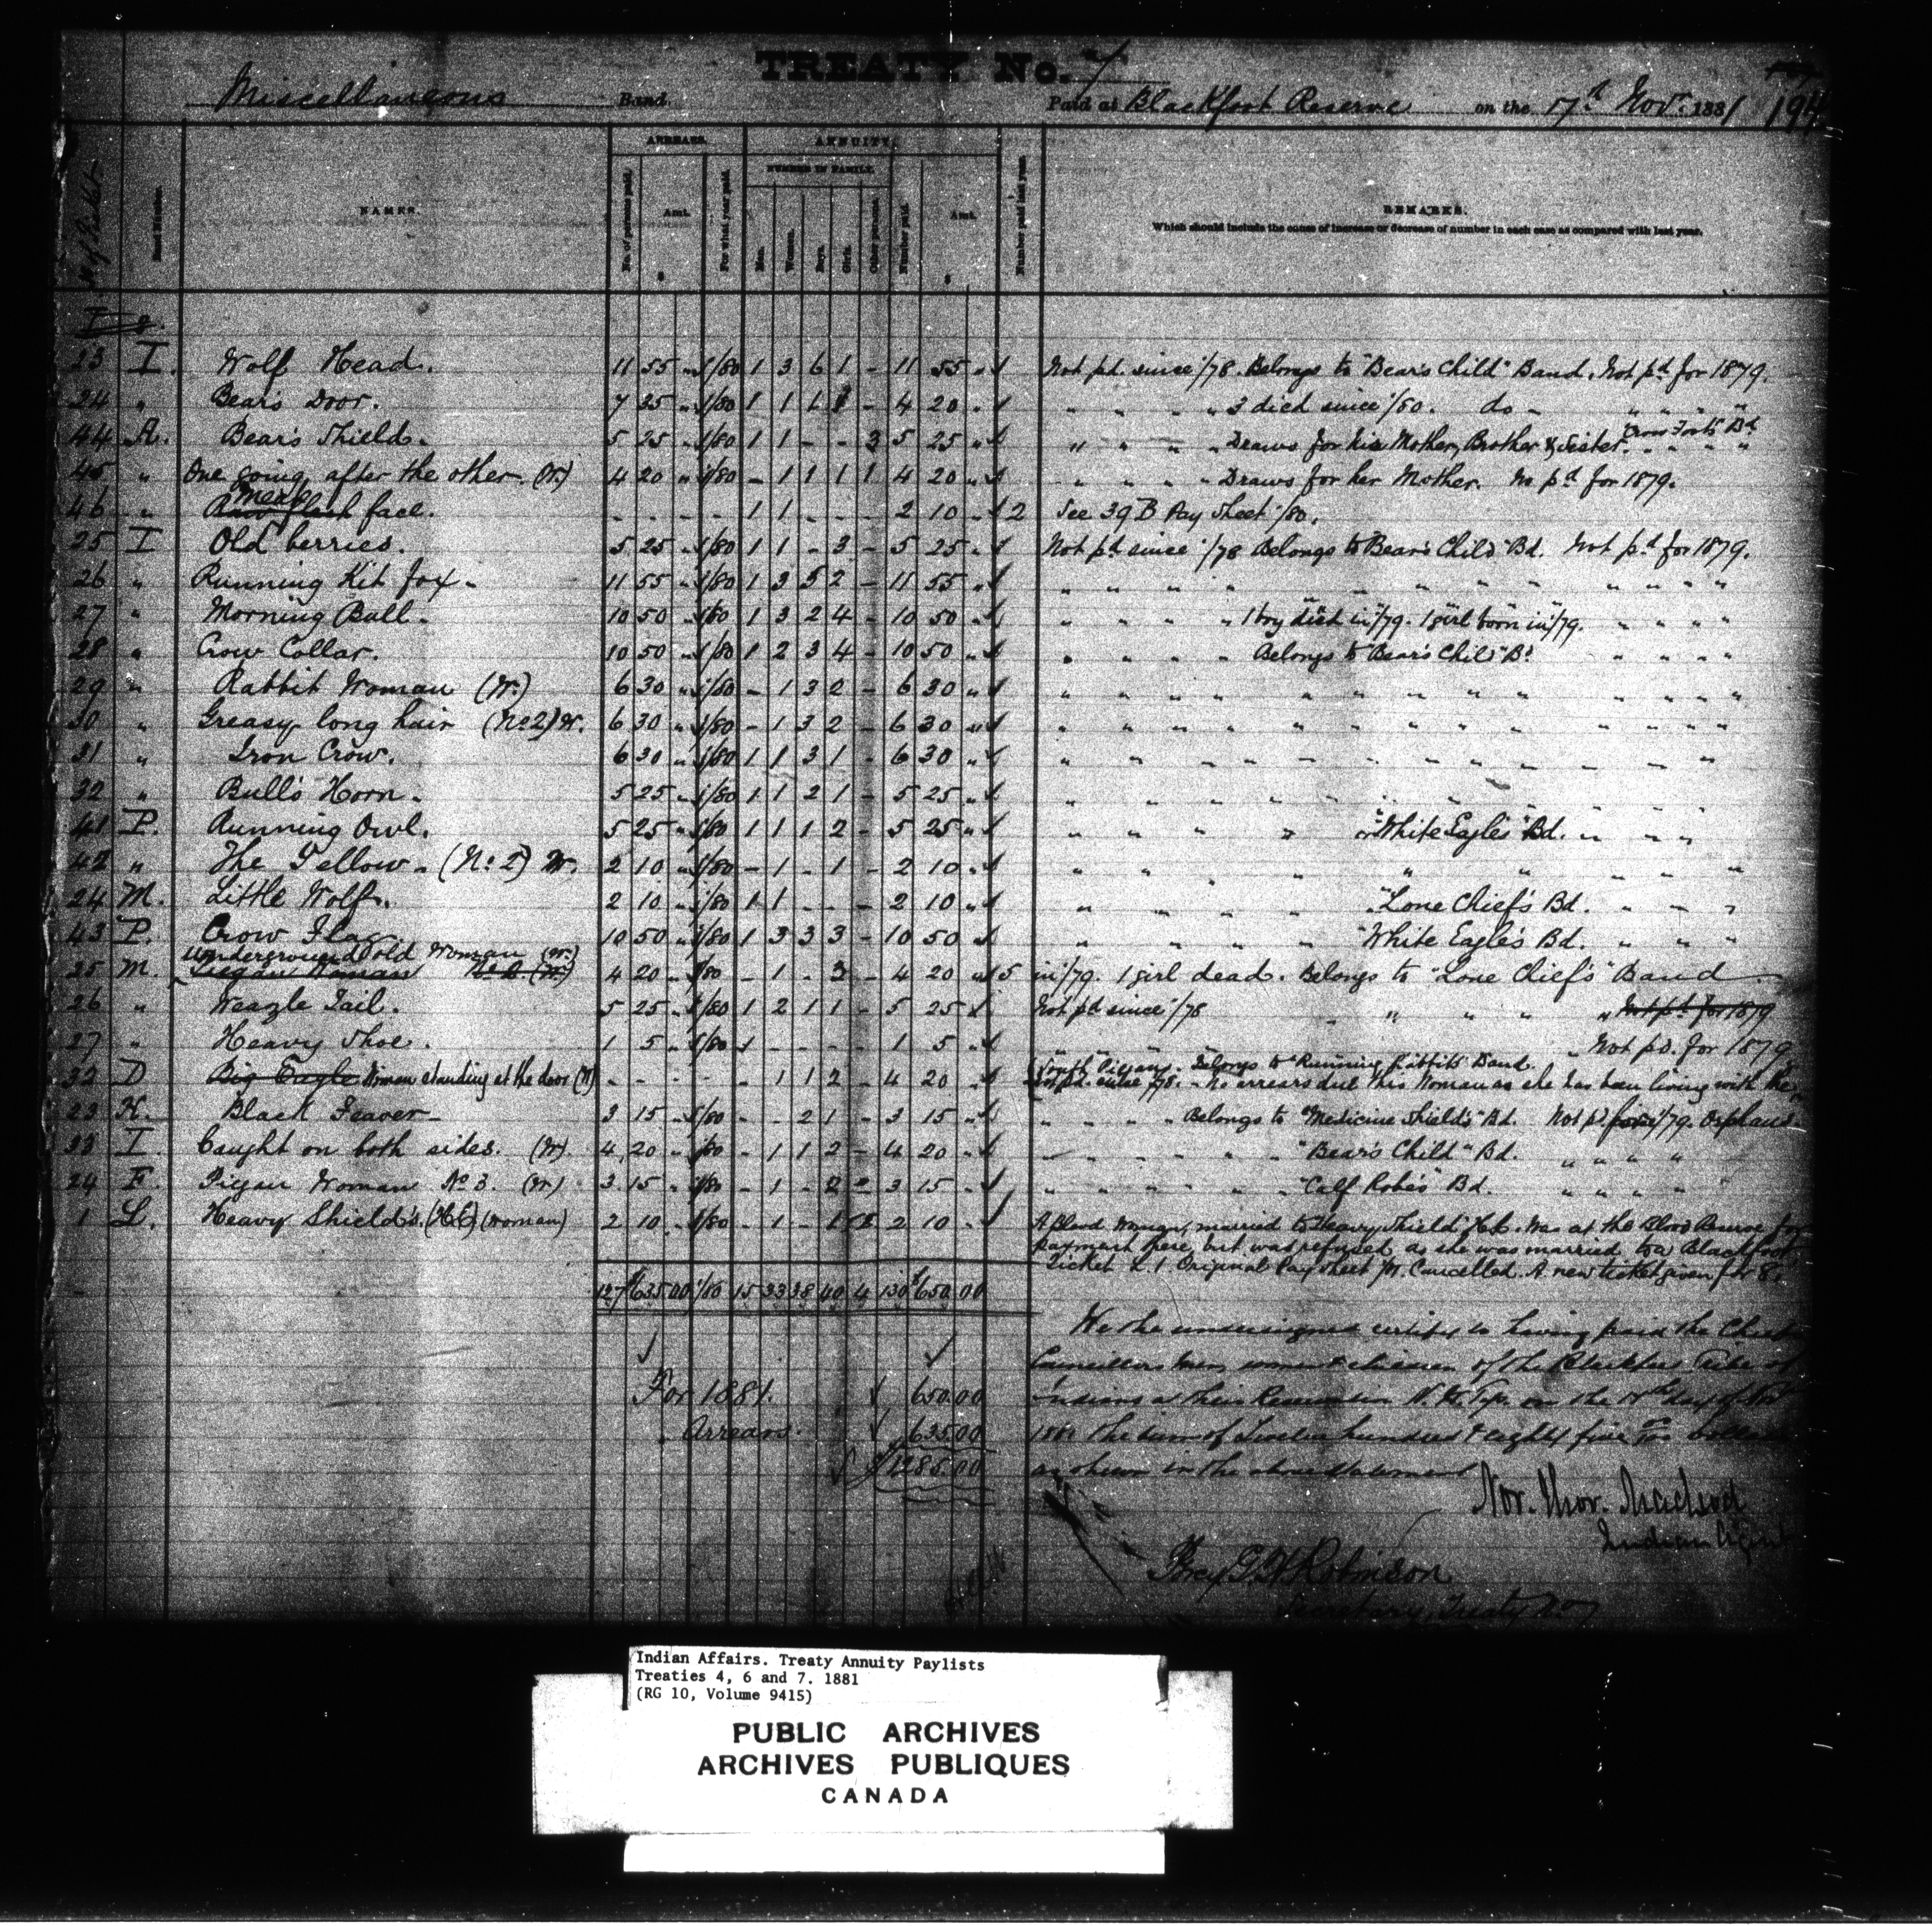 TREATY No. 7
Miscellaneous Band. Paid at Blackfoot Reserve on the 17th Novr. 1881 194
No of Ticket Band Number. NAMES. ARREARS. ANNUITY. REMARKS.
No. of persons paid. Amt. $ For what year paid. NUMBER IN FAMILY. Men. Women. Boys. Girls. Other persons. Number paid. Amt. $ Number paid last year. Which should include the cause of increase or decrease of number in each case as compared with last year.
23 I. Wolf Head. 11 55 " /80 1 3 6 1 - 11 55 " Not pd. since /78. Belongs to "Bear's Child" Band. Not pd for 1879.
24 " Bear's Door. 7 35 " /80 1 1 1 1 - 4 20 " " " " " 3 died since /80. do - " " " "
44 A. Bear's Shield. 5 25 " /80 1 1 - - 3 5 25 " " " " " Draws for his Mother, Brother & Sister. "Crow Foot's" Bd " " " "
45 " One going after the other. (W.) 4 20 " /80 - 1 1 1 1 4 20 " " " " " Draws for her Mother. No pd for 1879.
46 " face. - - - - 1 1 - - - 2 10 " 2 See 39 B Pay Sheet /80.
25 I Old berries. 5 25 " /80 1 1 - 3 - 5 25 " Not pd since /78 Belongs to "Bear's Child" Bd. Not pd for 1879.
26 " Running Kit fox. 11 55 " /80 1 3 5 2 - 11 55 " " " " " " " " " " " " "
27 " Morning Bull. 10 50 " /80 1 3 2 4 - 10 50 " " " " " 1 boy died in /79. 1 girl born in /79. " " " "
28 " Crow Collar. 10 50 " /80 1 2 3 4 - 10 50 " " " " " Belongs to "Bear's Child" Bd " " " "
29 " Rabbit Woman (W.) 6 30 " /80 - 1 3 2 - 6 30 " " " " " " " " " " " " "
30 " Greasy long hair (No 2) W. 6 30 " /80 - 1 3 2 - 6 30 " " " " " " " " " " " " "
31 " Iron Crow. 6 30 " /80 1 1 3 1 - 6 30 " " " " " " " " " " " " "
32 " Bull's Horn. 5 25 " /80 1 1 2 1 - 5 25 " " " " " " " " " " " " "
41 P. Running Owl. 5 25 " /80 1 1 1 2 - 5 25 " " " " " "White Eagle's" Bd. " " " "
42 " The Yellow. (No. 2) W. 2 10 " /80 - 1 - 1 - 2 10 " " " " " " " " " "
24 M. Little Wolf. 2 10 " /80 1 1 - - - 2 10 " " " " " "Lone Chief's Bd. " " "
43 P. Crow Flag. 10 50 " /80 1 3 3 3 - 10 50 " " " " " "White Eagle's Bd. " " "
Underground old Woman (W.)
25 M. Piegan Woman No 2 (W.) 4 20 " /80 - 1 - 3 - 4 20 " 5 in /79. 1 girl dead. Belongs to "Lone Chief's" Band
26 " Weazle Tail. 5 25 " /80 1 2 1 1 - 5 25 " Not pd since /78 " " " " Not pd for 1879
27 " Heavy Shoe. 1 5 " /80 1 - - - - 1 5 " " " Not pd. for 1879
32 D Big Eagle Woman standing at the door (W) - - - - - 1 1 2 - 4 20 " Not pd. since /78. - No arrears due this Woman as she has been living with the
South Piegans. Belongs to "Running Rabbit's Band.
23 K. Black Feaver 3 15 " /80 - - 2 1 - 3 15 " " " " " Belongs to "Medicine Shield's" Bd. Not pd for /79. Orphans
33 I. Caught on both sides. (W). 4 20 " /80 - 1 1 2 - 4 20 " " " " " " "Bear's Child" Bd. " " " "
24 F. Piegan Woman No 3. (W) 3 15 " /80 - 1 - 2 - 3 15 " " " " " " "Calf Robe's" Bd. " " " "
1 L. Heavy Shield's. (H.C.) (woman) 2 10 " /80 - 1 - 1 - 2 10 " A Blood Woman, married to Heavy Shield H.C. Was at the Blood Reserve for
payment there, but was refused as she was married to a Blackfoot
Ticket L. 1 Original Pay Sheet Cancelled. A new ticket given for 8
127 $635.00 /80 15 33 38 40 4 130 $650.00
We the undersigned certify to having paid the Chiefs
Councillors Men, women & children of the Blackfoot Tribe of
For 1881. 650.00 Indians at their Reservation N. W. Tys. on the 17th day of Nov
" Arrears. 635.00 1881 the sum of Twelve hundred & eighty five dollars
$1285.00 as shewn in the above statement
Nor. Thor. Macleod
Indian Agent
Percy G. H. Robinson
Secretary, Treaty No 7
Indian Affairs. Treaty Annuity Paylists
Treaties 4, 6 and 7. 1881
(RG 10, Volume 9415)
PUBLIC ARCHIVES
ARCHIVES PUBLIQUES
CANADA